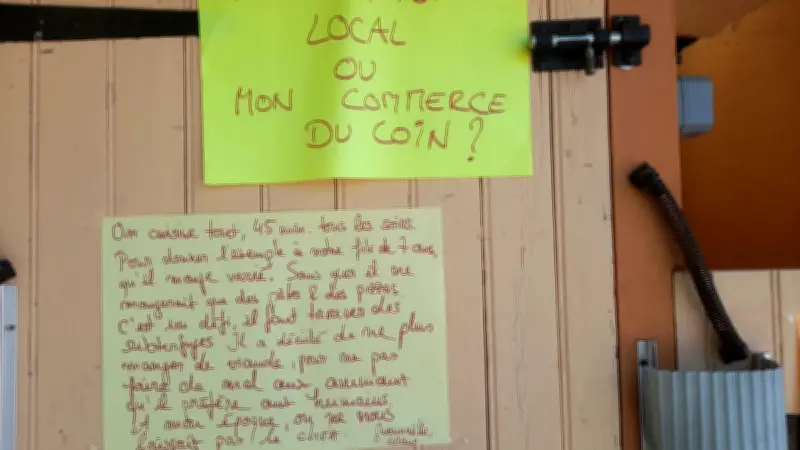 LOCAL
OU
MON COMMERCE
DU COIN ?
On cuisine tout, 45 min. tous les soirs.
Pour donner l'exemple à notre fils de 7 ans,
qu'il mange varié. Sans quoi il ne
mangerait que des pâtes & des pizzas.
C'est un défi, il faut trouver des
subterfuges. Il a décidé de ne plus
manger de viande, pour ne pas
faire de mal aux animaux
qu'il préfère aux humains.
A mon époque, on ne nous
laissait pas le choix.